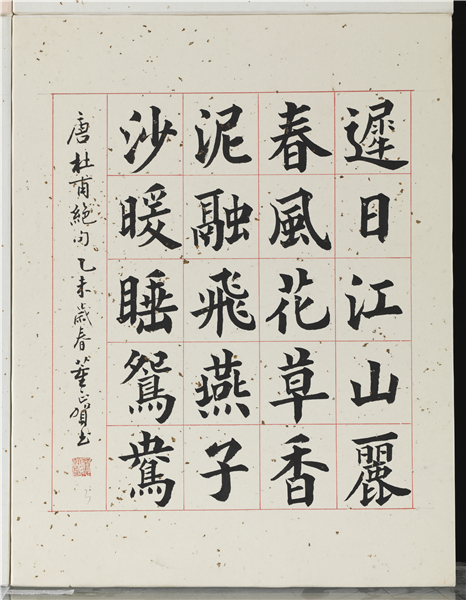 遲日江山麗
春風花草香
泥融飛燕子
沙暖睡鴛鴦
唐杜甫絕句乙未歲春董正賀書